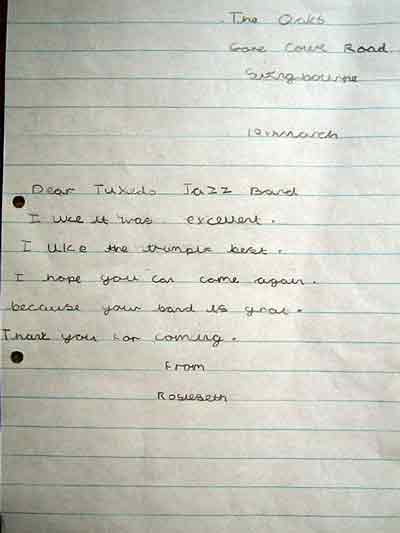 The Oaks
Gore Court Road
Sittngbourne
19th march
Dear Tuxedo Jazz Band
I like it was excellent.
I like the trumpie best.
I hope you can come again.
because your band is grat.
Thank you for coming.
From
Rosiebeth